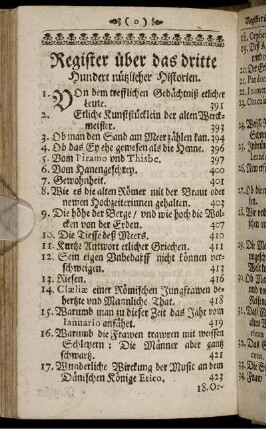 ( o )
Register über das dritte
Hundert nützlicher Historien.
1. Von dem trefflichen Gedächtniß etlicher
Leute. 391
2. Etliche Kunststücklein der alten Werck-
meister. 393
3. Ob man den Sand am Meer zählen kan. 394
4. Ob das Ey ehe gewesen als die Henne. 396
5. Vom Piramo und Thisbe. 397
6. Vom Hanengeschrey. 400
7. Gewohnheit. 401
8. Wie es die alten Römer mit der Braut oder
newen Hochzeiterinnen gehalten. 403
9. Die höhe der Berge / vnd wie hoch die Wol-
cken von der Erden. 407
10. Die Tieffe deß Meers. 410
11. Kurtze Antwort etlicher Griechen. 411
12. Sein eigen Vnbedarff nicht können ver-
schweigen. 413
13. Riesen. 416
14. Clœliæ einer Römischen Jungfrawen be-
hertzte vnd Mannliche That. 418
15. Warumb man zu dieser Zeit das Jahr vom
Januario anfähet. 419
16. Warumb die Frawen trawren mit weissen
Schleyern: Die Männer aber gantz
schwartz. 421
17. Wunderliche Wirckung der Music an dem
Dänischen Könige Erico. 423
18. Or-